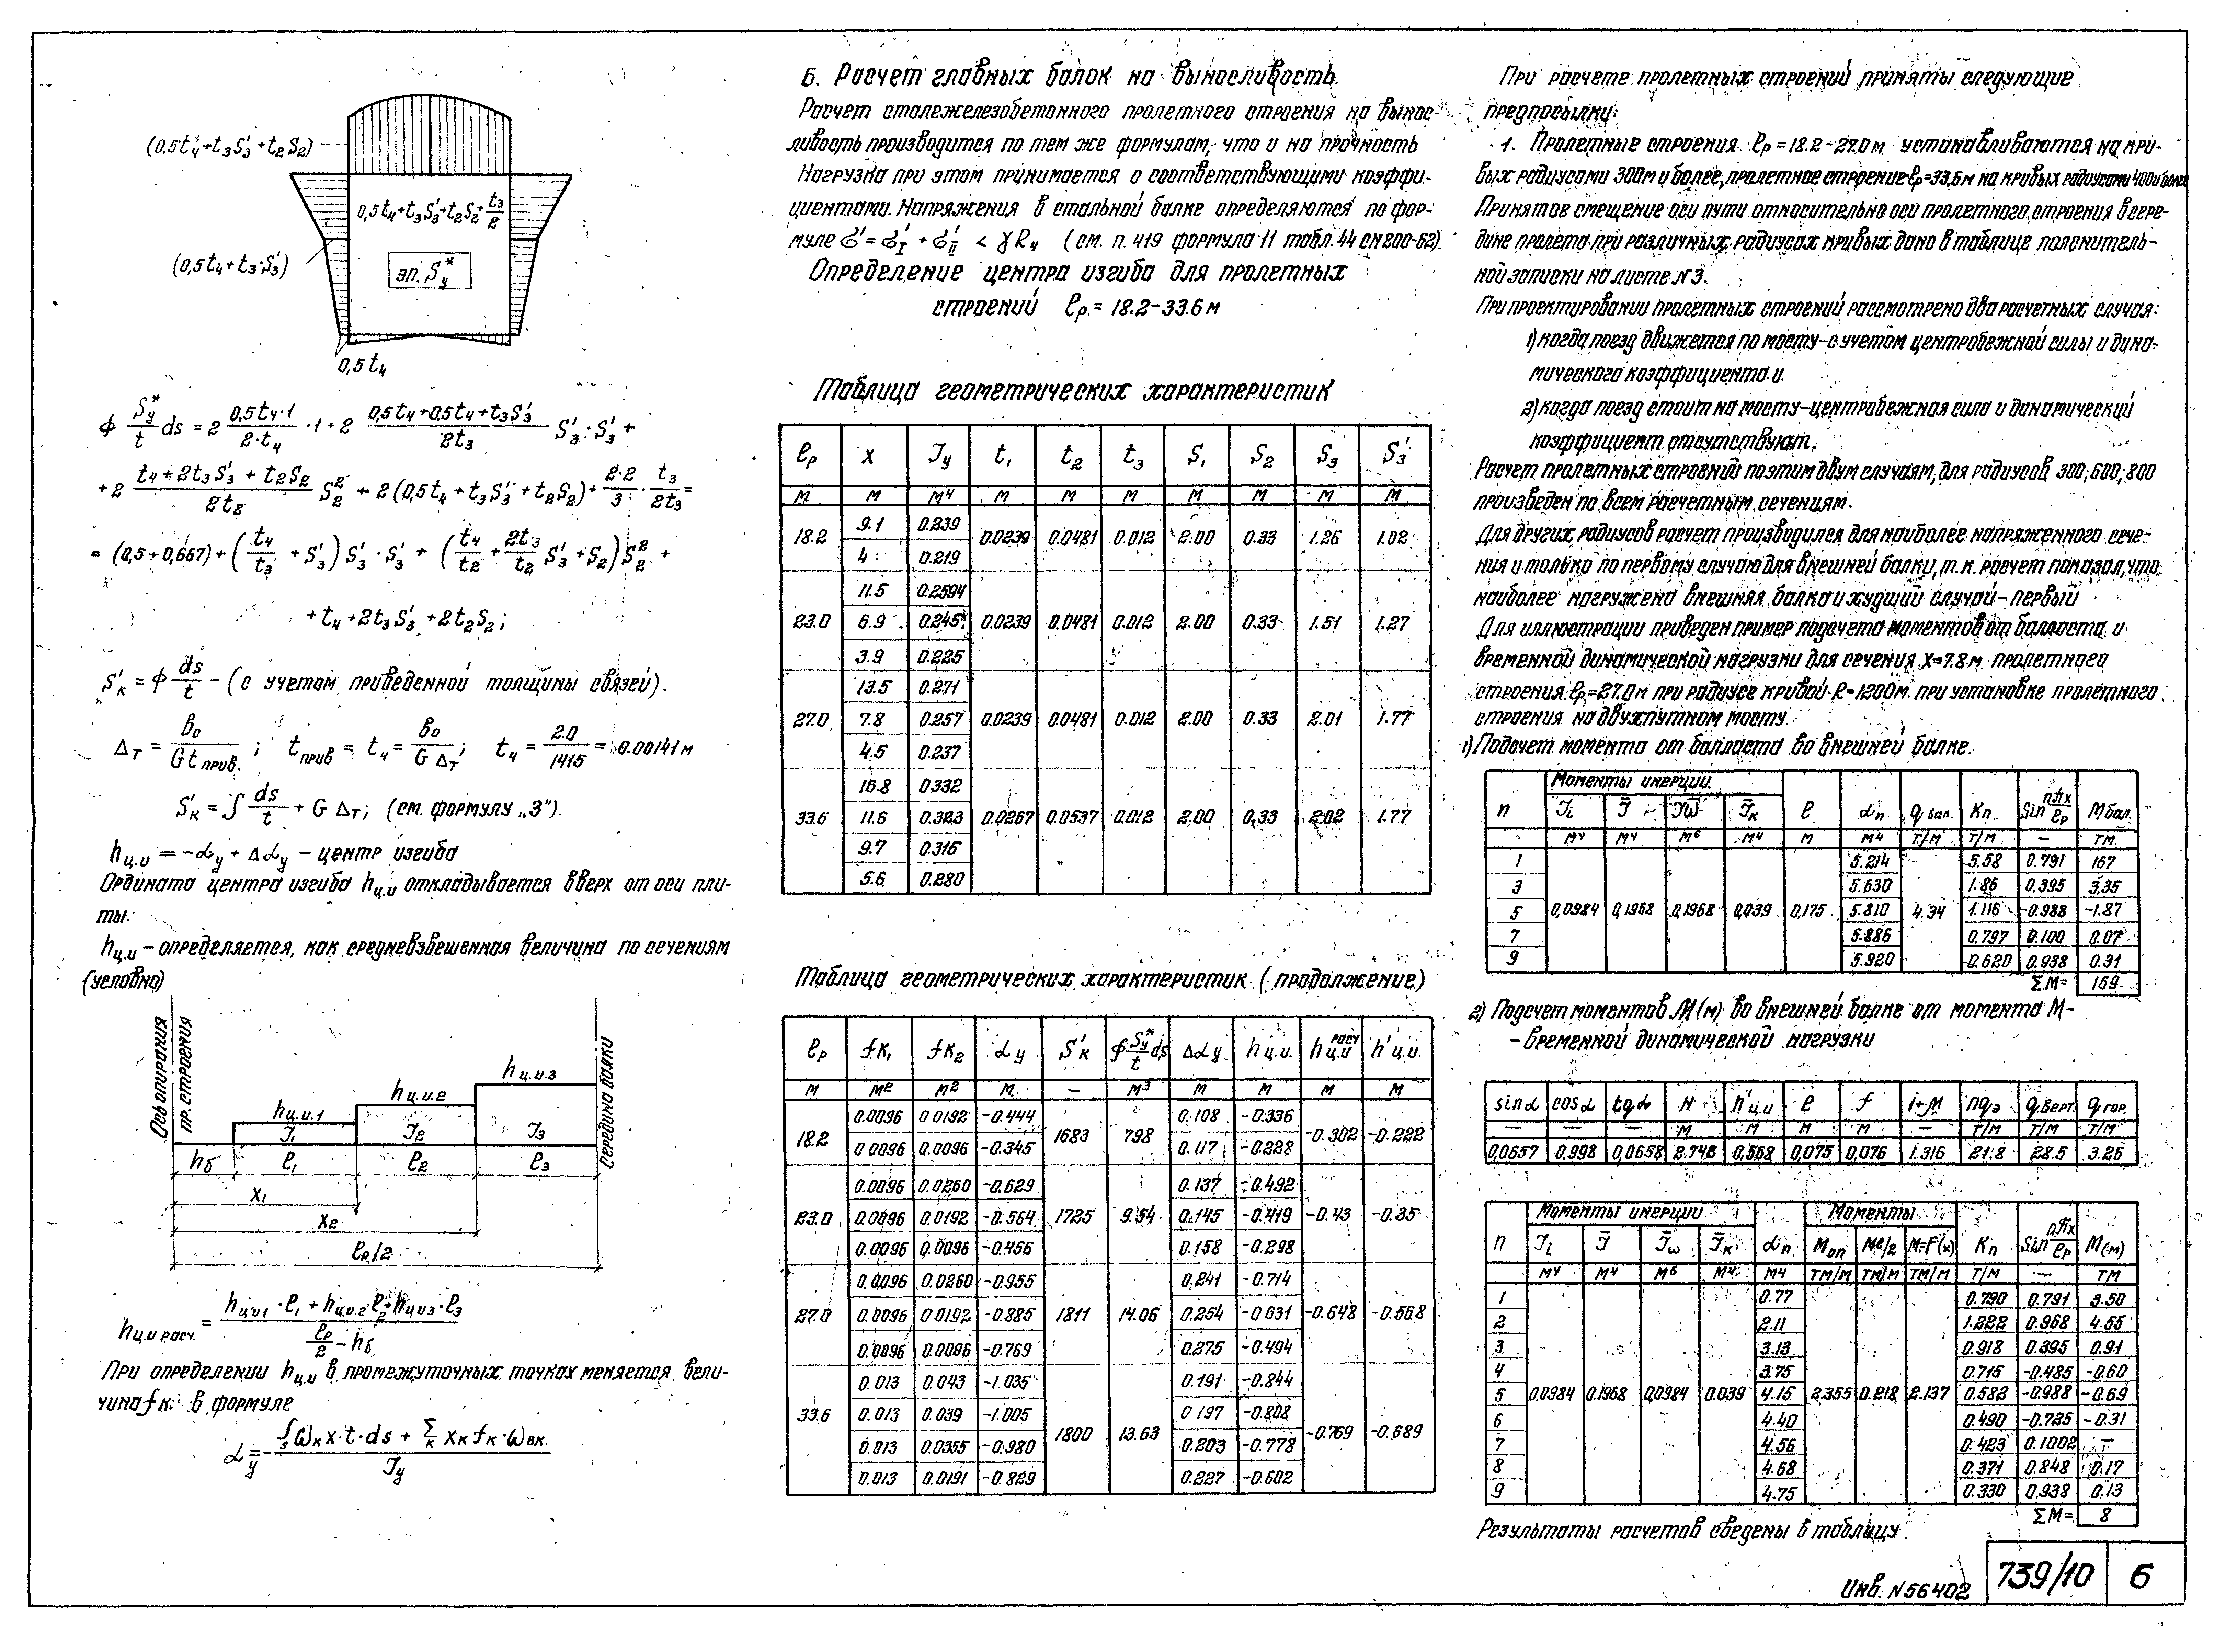 (0,5t₄+t₃S₃'+t₂S₂)
0,5t₄+t₃S₃'+t₂S₂+t₃/2
(0,5t₄+t₃·S₃')
эп. S*у
0,5t₄
∮ S*у/t ds = 2 0,5t₄·1/2·t₄ ·1+2 0,5t₄+0,5t₄+t₃S₃'/2t₃ S₃'·S₃'+
+2 t₄+2t₃S₃'+t₂S₂/2t₂ S₂² + 2(0,5t₄+t₃S₃'+t₂S₂)+ 2·2/3 · t₃/2t₃ =
= (0,5+0,667)+(t₄/t₃ +S₃')S₃'·S₃' + (t₄/t₂ + 2t₃/t₂ S₃'+S₂)S₂² +
+t₄+2t₃S₃'+2t₂S₂;
S'к = ∮ ds/t – (с учетом приведенной толщины связей).
Δт = в₀/Gtприв. ; tприв = t₄ = в₀/GΔт ; t₄ = 2.0/1415 = 0.00141м
S'к = ∫ ds/t + G Δт; (см. формулу „3").
hц.и = -αу + Δαу – центр изгиба
Ордината центра изгиба hц.и откладывается вверх от оси пли-
ты.
hц.и – определяется, как средневзвешенная величина по сечениям
(условно)
Ось опирания пр. строения
hц.и.1
hц.и.2
hц.и.3
J₁ J₂ J₃
Середина балки
hб ℓ₁ ℓ₂ ℓ₃
x₁
x₂
ℓр/2
hц.и расч. = hци1·ℓ₁+hци2·ℓ₂+hци3·ℓ₃ / ℓр/2 – hб
При определении hц.и в промежуточных точках меняется вели-
чина fк в формуле
αу = - ∫s ωк x·t·ds + Σк xк fк·ωвк / Jу
Б. Расчет главных балок на выносливость.
Расчет сталежелезобетонного пролетного строения на вынос-
ливость производится по тем же формулам, что и на прочность
Нагрузка при этом принимается с соответствующими коэффи-
циентами. Напряжения в стальной балке определяются по фор-
муле σ' = σ'I + σ'II < γRч (см. п. 419 формула 11 табл. 44 СН 200-62).
Определение центра изгиба для пролетных
строений ℓр = 18.2–33.6 м
Таблица геометрических характеристик
ℓр x Jу t₁ t₂ t₃ S₁ S₂ S₃ S₃'
м м м⁴ м м м м м м м
18.2 9.1 0.239 0.0239 0.0481 0.012 2.00 0.33 1.26 1.02
4 0.219
11.5 0.2594
23.0 6.9 0.245 0.0239 0.0481 0.012 2.00 0.33 1.51 1.27
3.9 0.225
13.5 0.271
27.0 7.8 0.257 0.0239 0.0481 0.012 2.00 0.33 2.01 1.77
4.5 0.237
16.8 0.332
33.6 11.6 0.323 0.0267 0.0537 0.012 2.00 0.33 2.02 1.77
9.7 0.315
5.6 0.280
Таблица геометрических характеристик (продолжение)
ℓр fк₁ fк₂ αу S'к ∮ S*у/t ds Δαу hц.и. hрасч ц.и h'ц.и.
м м² м² м – м³ м м м м
0.0096 0.0192 -0.444 0.108 -0.336
18.2 1683 798 -0.302 -0.222
0.0096 0.0096 -0.345 0.117 -0.228
0.0096 0.0260 -0.629 0.137 -0.492
23.0 0.0096 0.0192 -0.564 1725 9.54 0.145 -0.419 -0.43 -0.35
0.0096 0.0096 -0.456 0.158 -0.298
0.0096 0.0260 -0.955 0.241 -0.714
27.0 0.0096 0.0192 -0.885 1811 14.06 0.254 -0.631 -0.648 -0.568
0.0096 0.0096 -0.769 0.275 -0.494
0.013 0.043 -1.035 0.191 -0.844
33.6 0.013 0.039 -1.005 1800 13.63 0.197 -0.808 -0.769 -0.689
0.013 0.0355 -0.980 0.203 -0.778
0.013 0.0191 -0.829 0.227 -0.602
При расчете пролетных строений приняты следующие
предпосылки:
1. Пролетные строения ℓр = 18.2–27.0 м устанавливаются на кри-
вых радиусами 300м и более, пролетное строение ℓр=33,6м на кривых радиусами 400 и более
Принятое смещение оси пути относительно оси пролетного строения в сере-
дине пролета при различных радиусах кривых дано в таблице пояснитель-
ной записки на листе N3.
При проектировании пролетных строений рассмотрено два расчетных случая:
1) когда поезд движется по мосту – с учетом центробежной силы и дина-
мического коэффициента и
2) когда поезд стоит на мосту – центробежная сила и динамический
коэффициент отсутствуют.
Расчет пролетных строений по этим двум случаям, для радиусов 300; 600; 800
произведен по всем расчетным сечениям.
Для других радиусов расчет производился для наиболее напряженного сече-
ния и только по первому случаю для внешней балки, т.к. расчет показал, что
наиболее нагружена внешняя балка и худший случай – первый
Для иллюстрации приведен пример подсчета моментов от балласта и
временной динамической нагрузки для сечения x=7.8м пролетного
строения ℓр=27.0м при радиусе кривой R=1200м. при установке пролетного
строения на двухпутном мосту.
1) Подсчет момента от балласта во внешней балке.
Моменты инерции
n Ji J̄ J̄ω J̄к e αn qбал. Kn Sin nπx/ℓр Mбал.
м⁴ м⁴ м⁶ м⁴ м м⁴ т/м т/м – тм.
1 5.214 5.58 0.791 167
3 5.630 1.86 0.395 3.35
5 0,0984 0,1968 0,1968 0,039 0,175 5.810 4.34 1.116 -0.988 -1.87
7 5.886 0.797 0.100 0.07
9 5.920 0.620 0.938 0.31
ΣM= 169
2) Подсчет моментов M(м) во внешней балке от момента M-
– временной динамической нагрузки
sinα cosα tgα H h'ц.и e f 1+M nqэ qверт. qгор.
– – – м м м м – т/м т/м т/м
0,0657 0.998 0,0658 2.746 0,568 0,075 0,076 1.316 21.8 28.5 3.26
Моменты инерции Моменты
n Ji J̄ J̄ω J̄к αn Mоп Me/2 M=F(x) Kn Sin nπx/ℓр M(м)
м⁴ м⁴ м⁶ м⁴ м⁴ тм/м тм/м тм/м т/м – тм
1 0.77 0.790 0.791 3.50
2 2.11 1.222 0.968 4.55
3 3.13 0.918 0.395 0.91
4 3.75 0.715 -0.485 -0.60
5 0.0984 0.1968 0,0984 0.039 4.15 2.355 0.218 2.137 0.582 -0.988 -0.69
6 4.40 0.490 -0.725 -0.31
7 4.56 0.423 0.1002 –
8 4.68 0.371 0.848 0.17
9 4.75 0.330 0.938 0.13
ΣM= 8
Результаты расчетов сведены в таблицу.
Инв. N56402
739/10 6